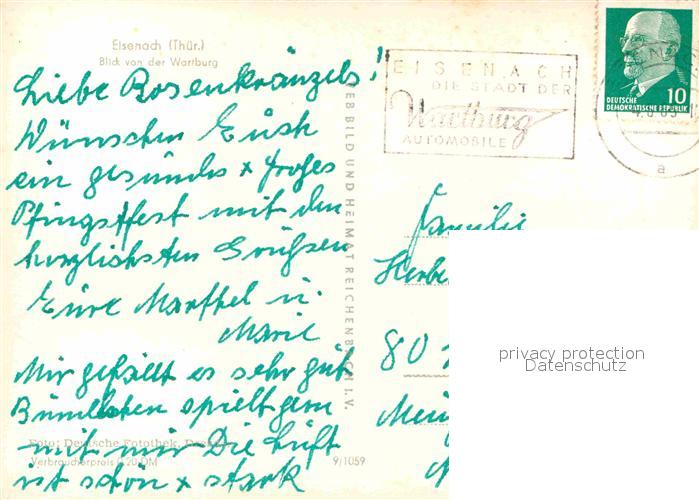 Eisenach (Thür.)
Blick von der Wartburg
Liebe Rosenkränzels!
Wünschen Euch
ein gesundes x frohes
Pfingstfest mit den
herzlichsten Grüßen
Eure u.
Marie
Mir gefällt es sehr gut
spielt gern
mit mir Die Luft
ist schön x stark
Foto: Deutsche Fotothek, Dresden
Verbraucherpreis 0,20 DM
9/1059
VEB BILD UND HEIMAT REICHENBACH I. V.
EISENACH
DIE STADT DER
Wartburg
AUTOMOBILE
10
DEUTSCHE
DEMOKRATISCHE REPUBLIK
a
Familie
80
privacy protection
Datenschutz